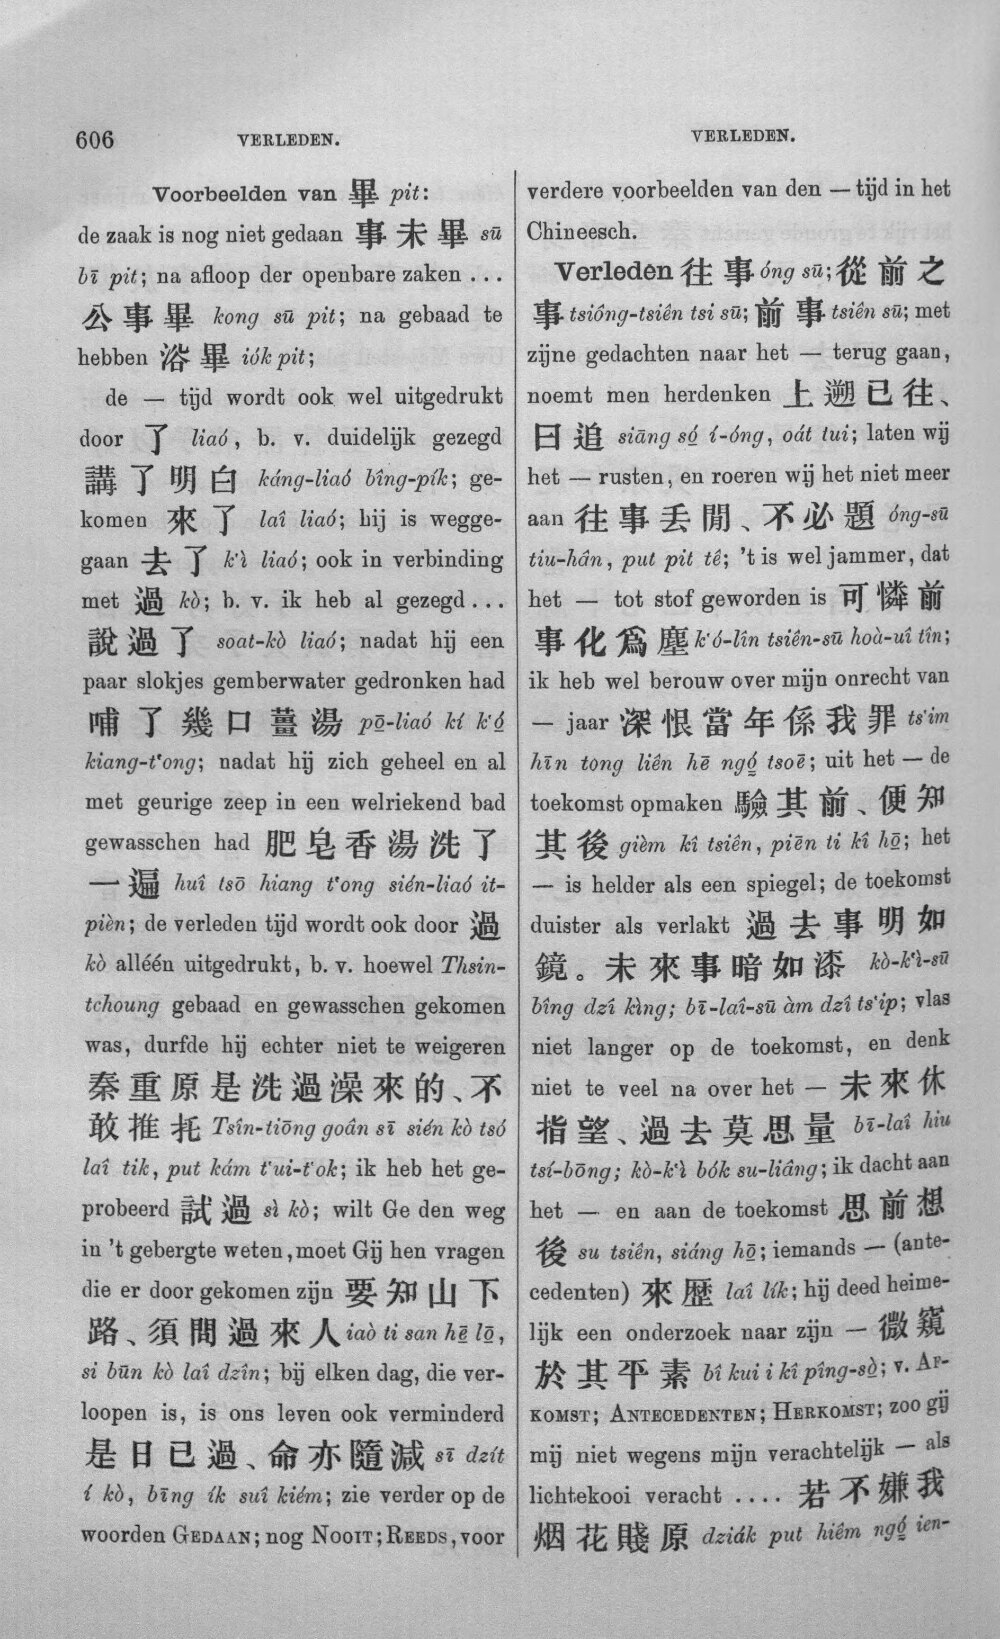 606
VERLEDEN.
VERLEDEN.
Voorbeelden van 畢 pit:
de zaak is nog niet gedaan 事未畢 sū
bī pit; na afloop der openbare zaken ...
公事畢 kong sū pit; na gebaad te
hebben 浴畢 iók pit;
de — tijd wordt ook wel uitgedrukt
door 了 liaó, b. v. duidelijk gezegd
講了明白 káng-liaó bîng-pík; ge-
komen 來了 laî liaó; hij is wegge-
gaan 去了 k'ì liaó; ook in verbinding
met 過 kò; b. v. ik heb al gezegd...
說過了 soat-kò liaó; nadat hij een
paar slokjes gemberwater gedronken had
哺了幾口薑湯 pō̤-liaó kí k'ó̤
kiang-t'ong; nadat hij zich geheel en al
met geurige zeep in een welriekend bad
gewasschen had 肥皂香湯洗了
一遍 huî tsō hiang t'ong sién-liaó it-
pièn; de verleden tijd wordt ook door 過
kò alléén uitgedrukt, b. v. hoewel Thsin-
tchoung gebaad en gewasschen gekomen
was, durfde hij echter niet te weigeren
秦重原是洗過澡來的、不
敢推托 Tsîn-tiōng goân sī sién kò tsó
laî tik, put kám t'ui-t'ok; ik heb het ge-
probeerd 試過 sì kò; wilt Ge den weg
in 't gebergte weten, moet Gij hen vragen
die er door gekomen zijn 要知山下
路、須問過來人 iaò ti san hē̤ lō̤,
si būn kò laî dzîn; bij elken dag, die ver-
loopen is, is ons leven ook verminderd
是日已過、命亦隨減 sī dzít
í kò, bīng ík suî kiém; zie verder op de
woorden GEDAAN; nog NOOIT; REEDS, voor
verdere voorbeelden van den — tijd in het
Chineesch.
Verleden 往事 óng sū; 從前之
事 tsióng-tsiên tsi sū; 前事 tsiên sū; met
zijne gedachten naar het — terug gaan,
noemt men herdenken 上遡已往、
曰追 siāng só̤ í-óng, oát tui; laten wij
het — rusten, en roeren wij het niet meer
aan 往事丢閒、不必題 óng-sū
tiu-hân, put pit tê; 't is wel jammer, dat
het — tot stof geworden is 可憐前
事化爲塵 k'ó-lîn tsiên-sū hoà-uî tîn;
ik heb wel berouw over mijn onrecht van
— jaar 深恨當年係我罪 ts'im
hīn tong liên hē ngó̤ tsoē; uit het — de
toekomst opmaken 驗其前、便知
其後 gièm kî tsiên, piēn ti kî hō̤; het
— is helder als een spiegel; de toekomst
duister als verlakt 過去事明如
鏡。未來事暗如漆 kò-k'ì-sū
bîng dzî kìng; bī-laî-sū àm dzî ts'ip; vlas
niet langer op de toekomst, en denk
niet te veel na over het — 未來休
指望、過去莫思量 bī-laî hiu
tsí-bōng; kò-k'ì bók su-liâng; ik dacht aan
het — en aan de toekomst 思前想
後 su tsiên, siáng hō̤; iemands — (ante-
cedenten) 來歷 laî lík; hij deed heime-
lijk een onderzoek naar zijn — 微窺
於其平素 bî kui i kî pîng-sò̤; v. AF-
KOMST; ANTECEDENTEN; HERKOMST; zoo gij
mij niet wegens mijn verachtelijk — als
lichtekooi veracht .... 若不嫌我
烟花賤原 dziák put hiêm ngó̤ ien-